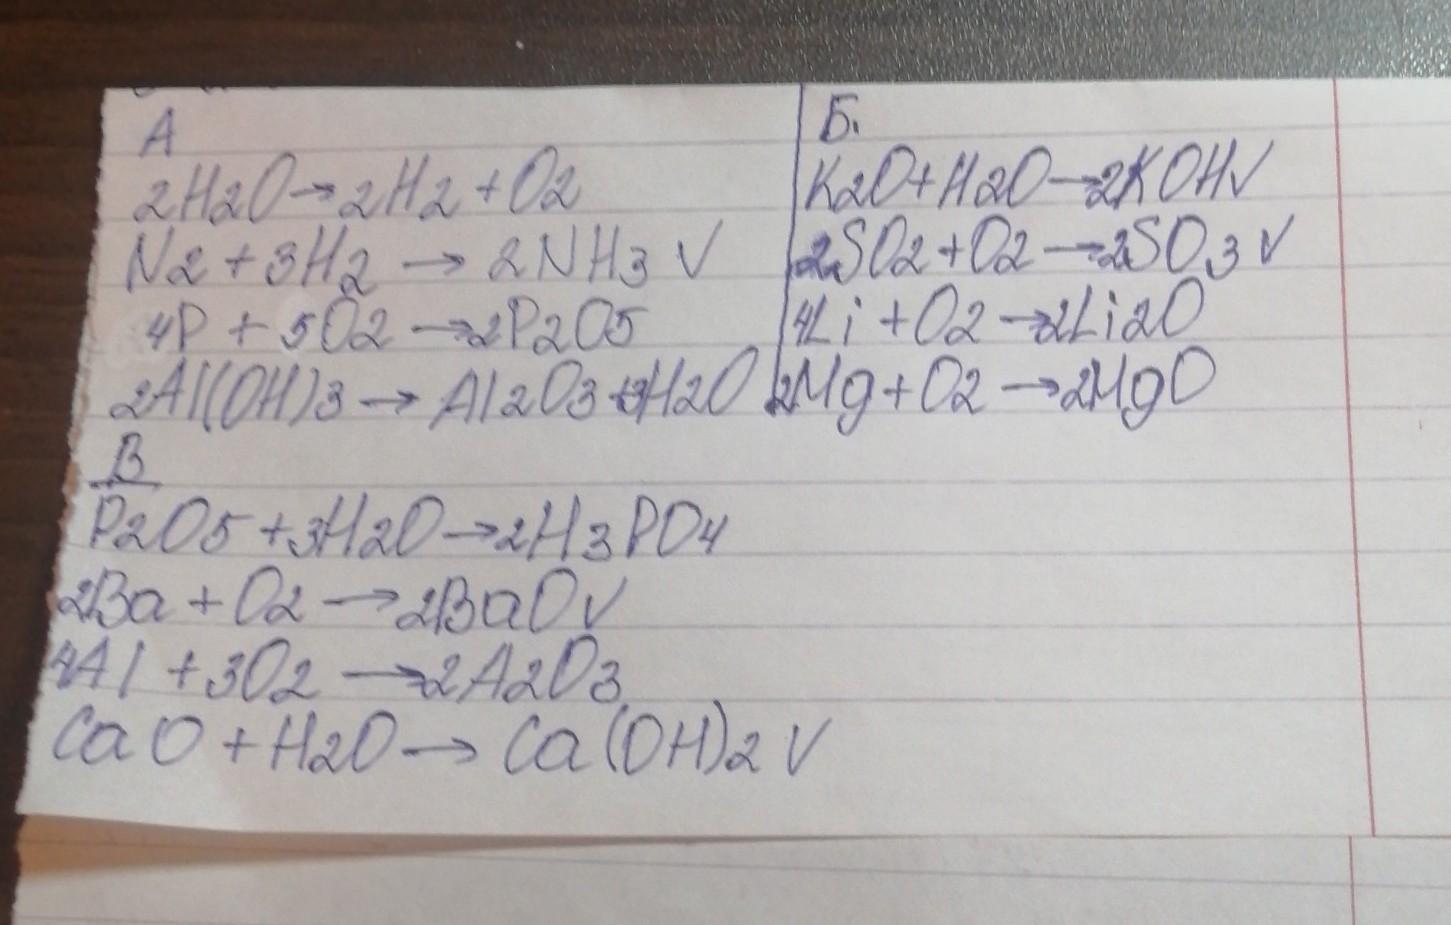 А
2H2O→2H2+O2
N2+3H2→2NH3 V
4P+5O2→2P2O5
2Al(OH)3→Al2O3+3H2O
Б.
K2O+H2O→2KOH V
2SO2+O2→2SO3 V
4Li+O2→2Li2O
2Mg+O2→2MgO
В
P2O5+3H2O→2H3PO4
2Ba+O2→2BaO V
4Al+3O2→2A2O3
CaO+H2O→Ca(OH)2 V